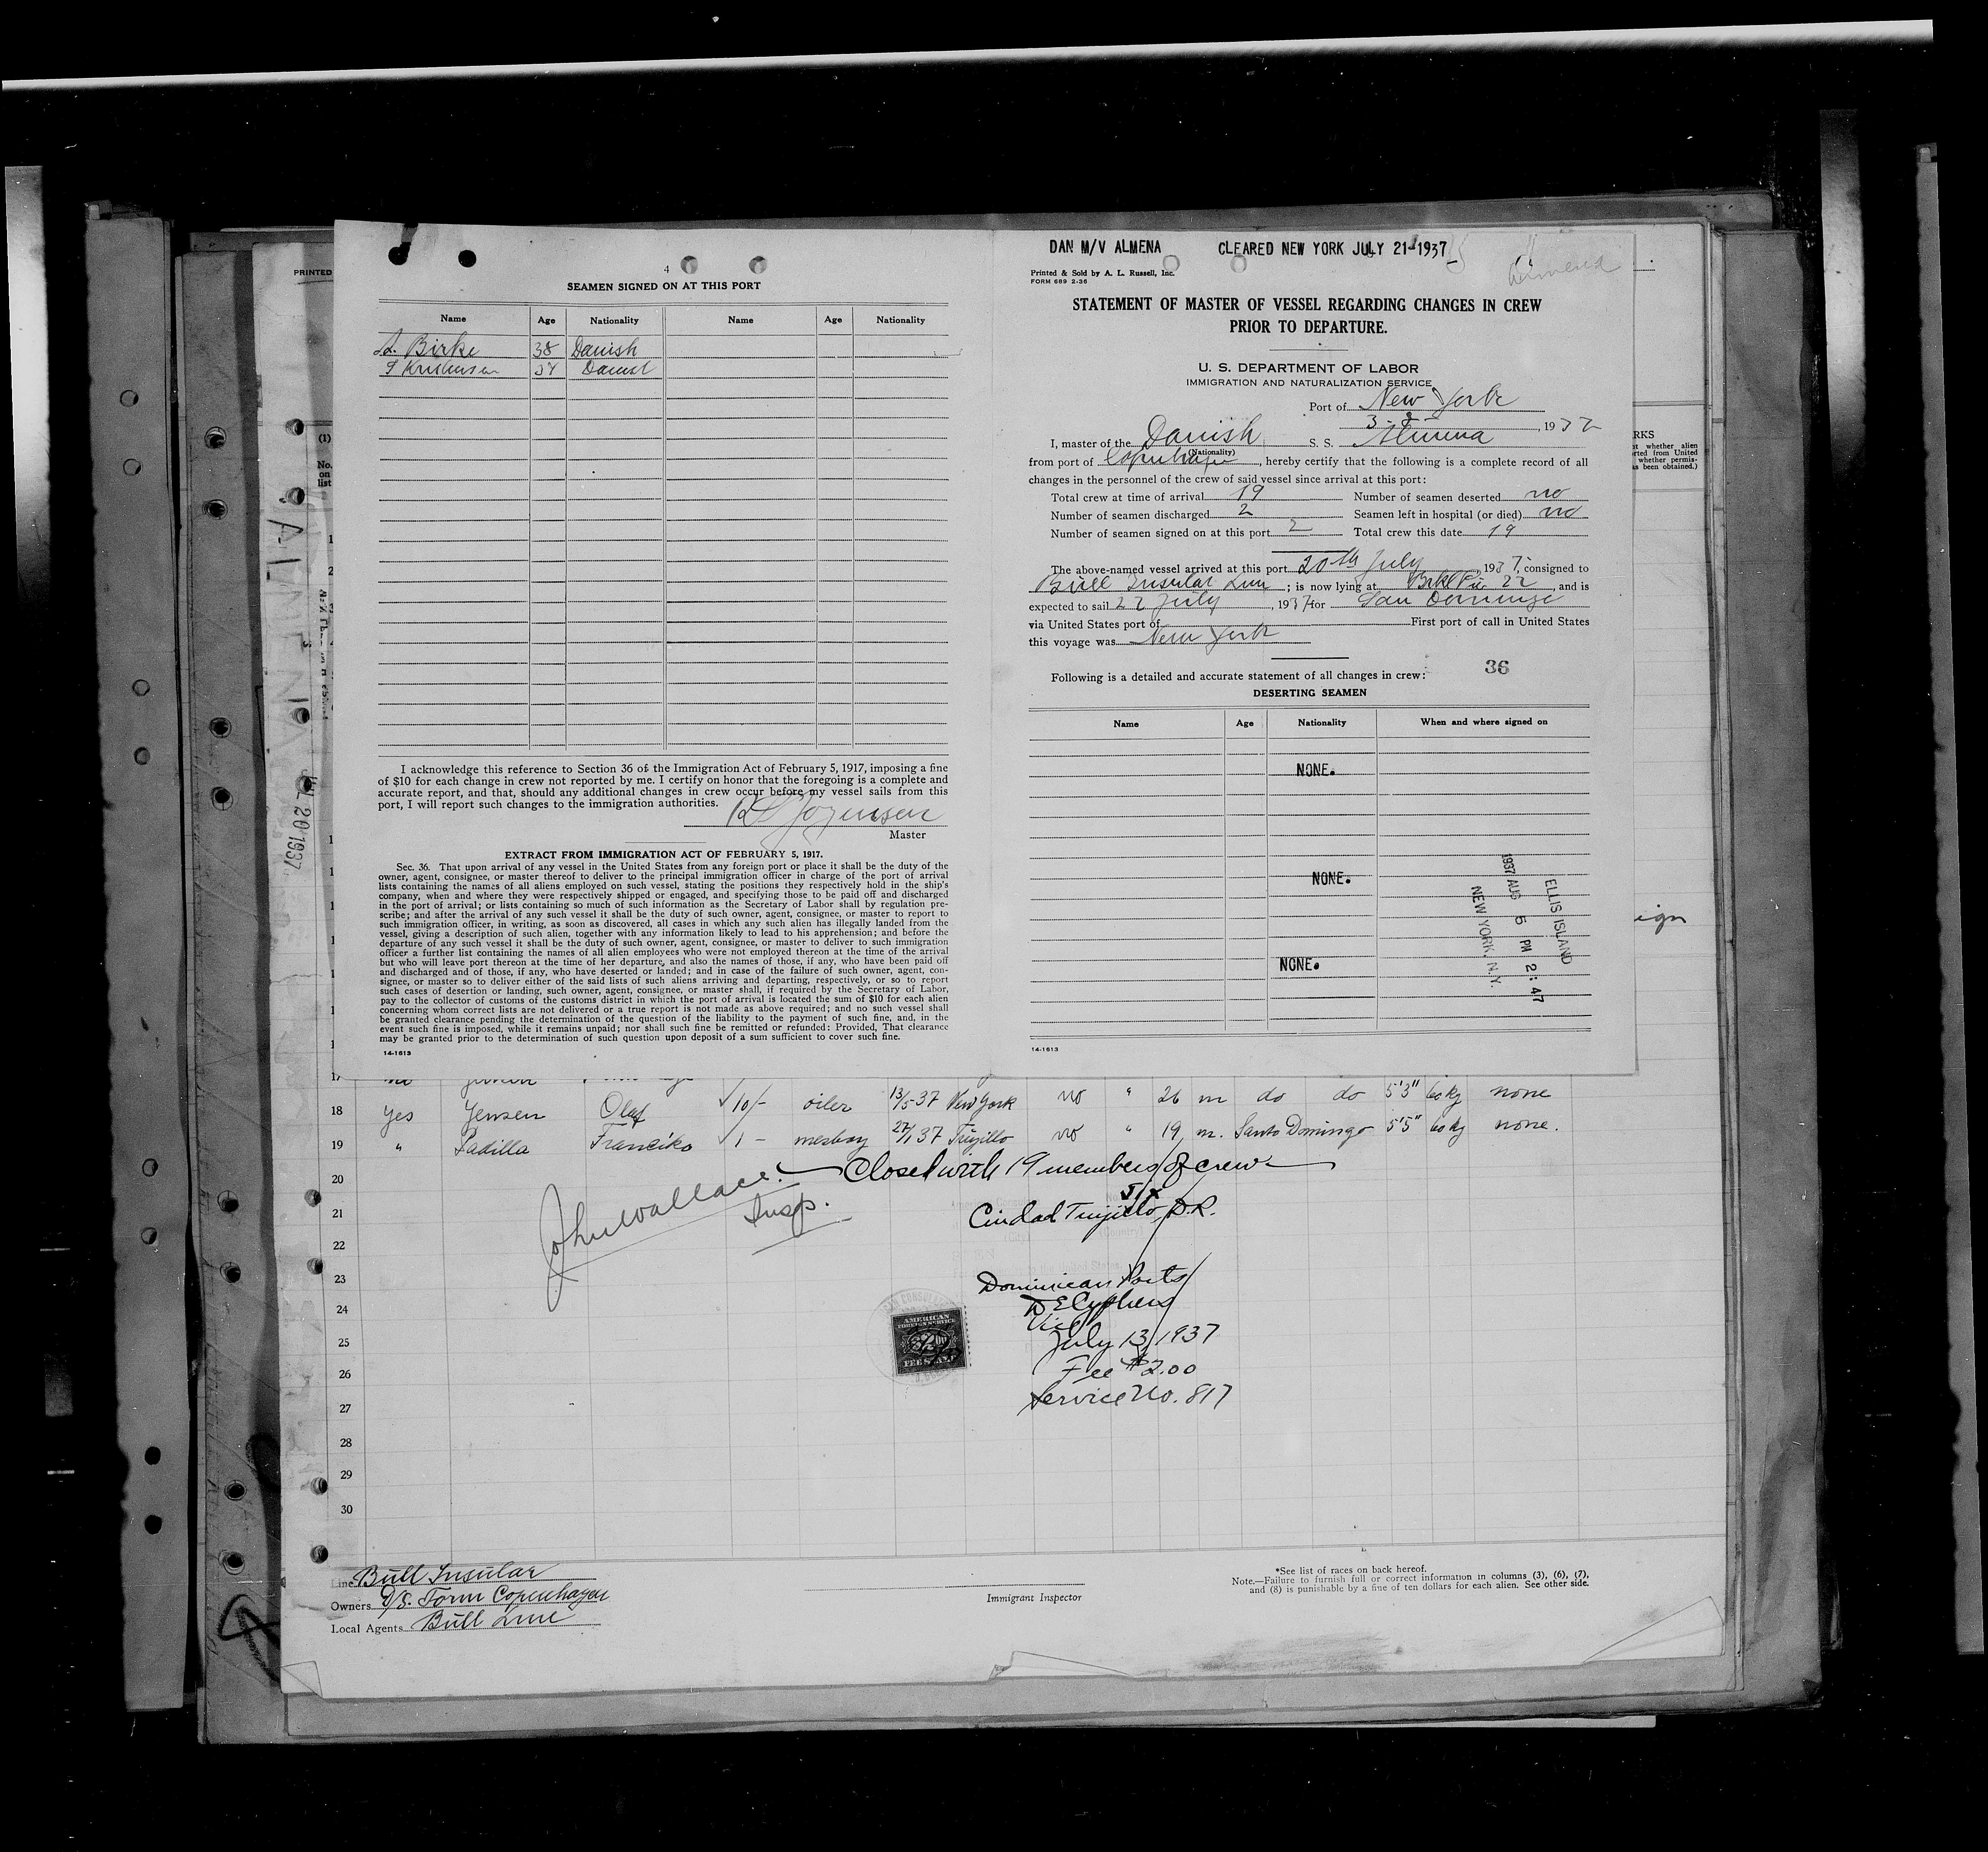 4
SEAMEN SIGNED ON AT THIS PORT
Name Age Nationality Name Age Nationality
Birke 38 Danish
Danish
I acknowledge this reference to Section 36 of the Immigration Act of February 5, 1917, imposing a fine
of $10 for each change in crew not reported by me. I certify on honor that the foregoing is a complete and
accurate report, and that, should any additional changes in crew occur before my vessel sails from this
port, I will report such changes to the immigration authorities.
Jorgensen
Master
EXTRACT FROM IMMIGRATION ACT OF FEBRUARY 5, 1917.
Sec. 36. That upon arrival of any vessel in the United States from any foreign port or place it shall be the duty of the
owner, agent, consignee, or master thereof to deliver to the principal immigration officer in charge of the port of arrival
lists containing the names of all aliens employed on such vessel, stating the positions they respectively hold in the ship's
company, when and where they were respectively shipped or engaged, and specifying those to be paid off and discharged
in the port of arrival; or lists containing so much of such information as the Secretary of Labor shall by regulation pre-
scribe; and after the arrival of any such vessel it shall be the duty of such owner, agent, consignee, or master to report to
such immigration officer, in writing, as soon as discovered, all cases in which any such alien has illegally landed from the
vessel, giving a description of such alien, together with any information likely to lead to his apprehension; and before the
departure of any such vessel it shall be the duty of such owner, agent, consignee, or master to deliver to such immigration
officer a further list containing the names of all alien employees who were not employed thereon at the time of the arrival
but who will leave port thereon at the time of her departure, and also the names of those, if any, who have been paid off
and discharged and of those, if any, who have deserted or landed; and in case of the failure of such owner, agent, con-
signee, or master so to deliver either of the said lists of such aliens arriving and departing, respectively, or so to report
such cases of desertion or landing, such owner, agent, consignee, or master shall, if required by the Secretary of Labor,
pay to the collector of customs of the customs district in which the port of arrival is located the sum of $10 for each alien
concerning whom correct lists are not delivered or a true report is not made as above required; and no such vessel shall
be granted clearance pending the determination of the question of the liability to the payment of such fine, and, in the
event such fine is imposed, while it remains unpaid; nor shall such fine be remitted or refunded: Provided, That clearance
may be granted prior to the determination of such question upon deposit of a sum sufficient to cover such fine.
14-1613
DAN M/V ALMENA CLEARED NEW YORK JULY 21-1937
Almena
Printed & Sold by A. L. Russell, Inc.
FORM 689 2-36
STATEMENT OF MASTER OF VESSEL REGARDING CHANGES IN CREW
PRIOR TO DEPARTURE.
U. S. DEPARTMENT OF LABOR
IMMIGRATION AND NATURALIZATION SERVICE
Port of New York
3-8-, 1937
I, master of the Danish S. S. Almena
(Nationality)
from port of Copenhagen, hereby certify that the following is a complete record of all
changes in the personnel of the crew of said vessel since arrival at this port:
Total crew at time of arrival 19 Number of seamen deserted no
Number of seamen discharged 2 Seamen left in hospital (or died) no
Number of seamen signed on at this port 2 Total crew this date 19
The above-named vessel arrived at this port 20th July, 1937, consigned to
Bull Insular Line; is now lying at 22, and is
expected to sail 22 July, 1937 for San Domingo
via United States port of First port of call in United States
this voyage was New York
36
Following is a detailed and accurate statement of all changes in crew:
DESERTING SEAMEN
Name Age Nationality When and where signed on
NONE.
NONE.
NONE.
ELLIS ISLAND
1937 AUG 5 PM 2:47
NEW YORK, N.Y.
14-1613
PRINTED
(1)
No.
on
list
ALMENA
JUL 20 1937
RKS
whether alien
rted from United
whether permis-
as been obtained.)
ign
17
18 yes Jensen Olaf √10/- oiler 13/5-37 New York no " 26 m do do 5'3" 60 kg none
19 " Padilla Francisko √1 - messboy 27/1 37 Trujillo no " 19 m. Santo Domingo 5'5" 60 kg none.
20 Closed with 19 members of crew
John Wallace.
Insp.
21 Ciudad Trujillo, D.R.
22
23 Dominican Ports
24
Vice
25 July 13, 1937
26 Fee $2.00
27 Service No. 817
AMERICAN
FOREIGN SERVICE
FEE STAMP
28
29
30
Line Bull Insular
Owners D/S. Torm Copenhagen
Local Agents Bull Line
Immigrant Inspector
*See list of races on back hereof.
Note.—Failure to furnish full or correct information in columns (3), (6), (7),
and (8) is punishable by a fine of ten dollars for each alien. See other side.